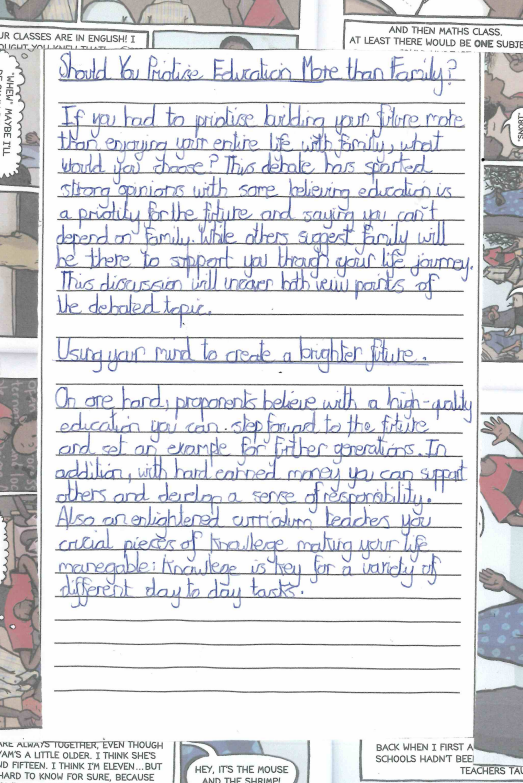 UR CLASSES ARE IN ENGLISH! I
AND THEN MATHS CLASS.
AT LEAST THERE WOULD BE ONE SUBJE
"WHEN," MAYBE I'LL
Should You Priotise Education More than Family?
If you had to priotise building your future more
than enjoying your entire life with family, what
would you choose? This debate has sparted
strong opinions with some believing education is
a priority for the future and saying you can't
depend on family. While others suggest family will
be there to support you through your life journey.
This discussion will uncover both view points of
the debated topic.
Using your mind to create a brighter future.
On one hand, proponents believe with a high-quality
education you can step forward to the future
and set an example for further generations. In
addition, with hard earned money you can support
others and develop a sense of responsibility.
Also an enlightened curriculum teaches you
crucial pieces of knowlege making your life
manegable: Knowlege is key for a variety of
different day to day tasks.
ARE ALWAYS TOGETHER, EVEN THOUGH
YAM'S A LITTLE OLDER. I THINK SHE'S
ND FIFTEEN. I THINK I'M ELEVEN...BUT
HARD TO KNOW FOR SURE, BECAUSE
HEY, IT'S THE MOUSE
AND THE SHRIMP!
BACK WHEN I FIRST A
SCHOOLS HADN'T BEE
TEACHERS TA